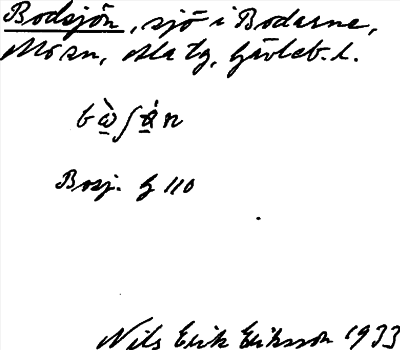 Bodsjön, sjö i Bodarne,
Mo sn, Ala tg, Gävleb. l.
bὼ̱ʃά̱n
Bosj. G 110
Nils Erik Eriksson 1933